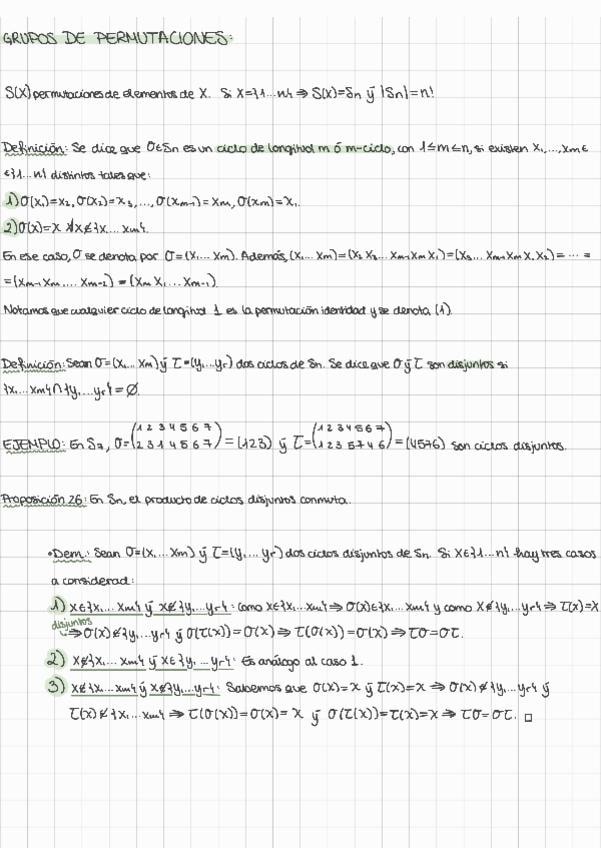 GRUPOS DE PERMUTACIONES:
S(X) permutaciones de elementos de X. Si X={1...n} ⇒ S(X)=Sn ÿ |Sn|=n!
Definición: Se dice que σ∈Sn es un ciclo de longitud m ó m-ciclo, con 1≤m≤n, si existen x₁,...,xm∈
∈{1...n} distintos tales que:
1) σ(x₁)=x₂, σ(x₂)=x₃, ..., σ(xm-1)=xm, σ(xm)=x₁.
2) σ(x)=x ∀x∉{x₁...xm}.
En ese caso, σ se denota por σ=(x₁...xm). Además, (x₁...xm)=(x₂ x₃...xm-1 xm x₁)=(x₃...xm-1 xm x₁ x₂)=...=
=(xm-1 xm ... xm-2)=(xm x₁...xm-1)
Notamos que cualquier ciclo de longitud 1 es la permutación identidad y se denota (1).
Definición: Sean σ=(x₁...xm) ÿ τ=(y₁...yr) dos ciclos de Sn. Se dice que σ ÿ τ son disjuntos si
{x₁...xm}∩{y₁...yr}=∅.
EJEMPLO: En S₇, σ=(1 2 3 4 5 6 7 / 2 3 1 4 5 6 7)=(123) ÿ τ=(1 2 3 4 5 6 7 / 1 2 3 5 7 4 6)=(4576) son ciclos disjuntos.
Proposición 26: En Sn, el producto de ciclos disjuntos conmuta.
•Dem.: Sean σ=(x₁...xm) ÿ τ=(y₁...yr) dos ciclos disjuntos de Sn. Si x∈{1...n} hay tres casos
a considerad:
1) x∈{x₁...xm} ÿ x∉{y₁...yr}: como x∈{x₁...xm} ⇒ σ(x)∈{x₁...xm} y como x∉{y₁...yr} ⇒ τ(x)=x
disjuntos
⇒ σ(x)∉{y₁...yr} ÿ σ(τ(x))=σ(x) ⇒ τ(σ(x))=σ(x) ⇒ τσ=στ.
2) x∉{x₁...xm} ÿ x∈{y₁...yr}: Es análogo al caso 1.
3) x∉{x₁...xm} ÿ x∉{y₁...yr}: Sabemos que σ(x)=x ÿ τ(x)=x ⇒ σ(x)∉{y₁...yr} ÿ
τ(x)∉{x₁...xm} ⇒ τ(σ(x))=σ(x)=x ÿ σ(τ(x))=τ(x)=x ⇒ τσ=στ. □